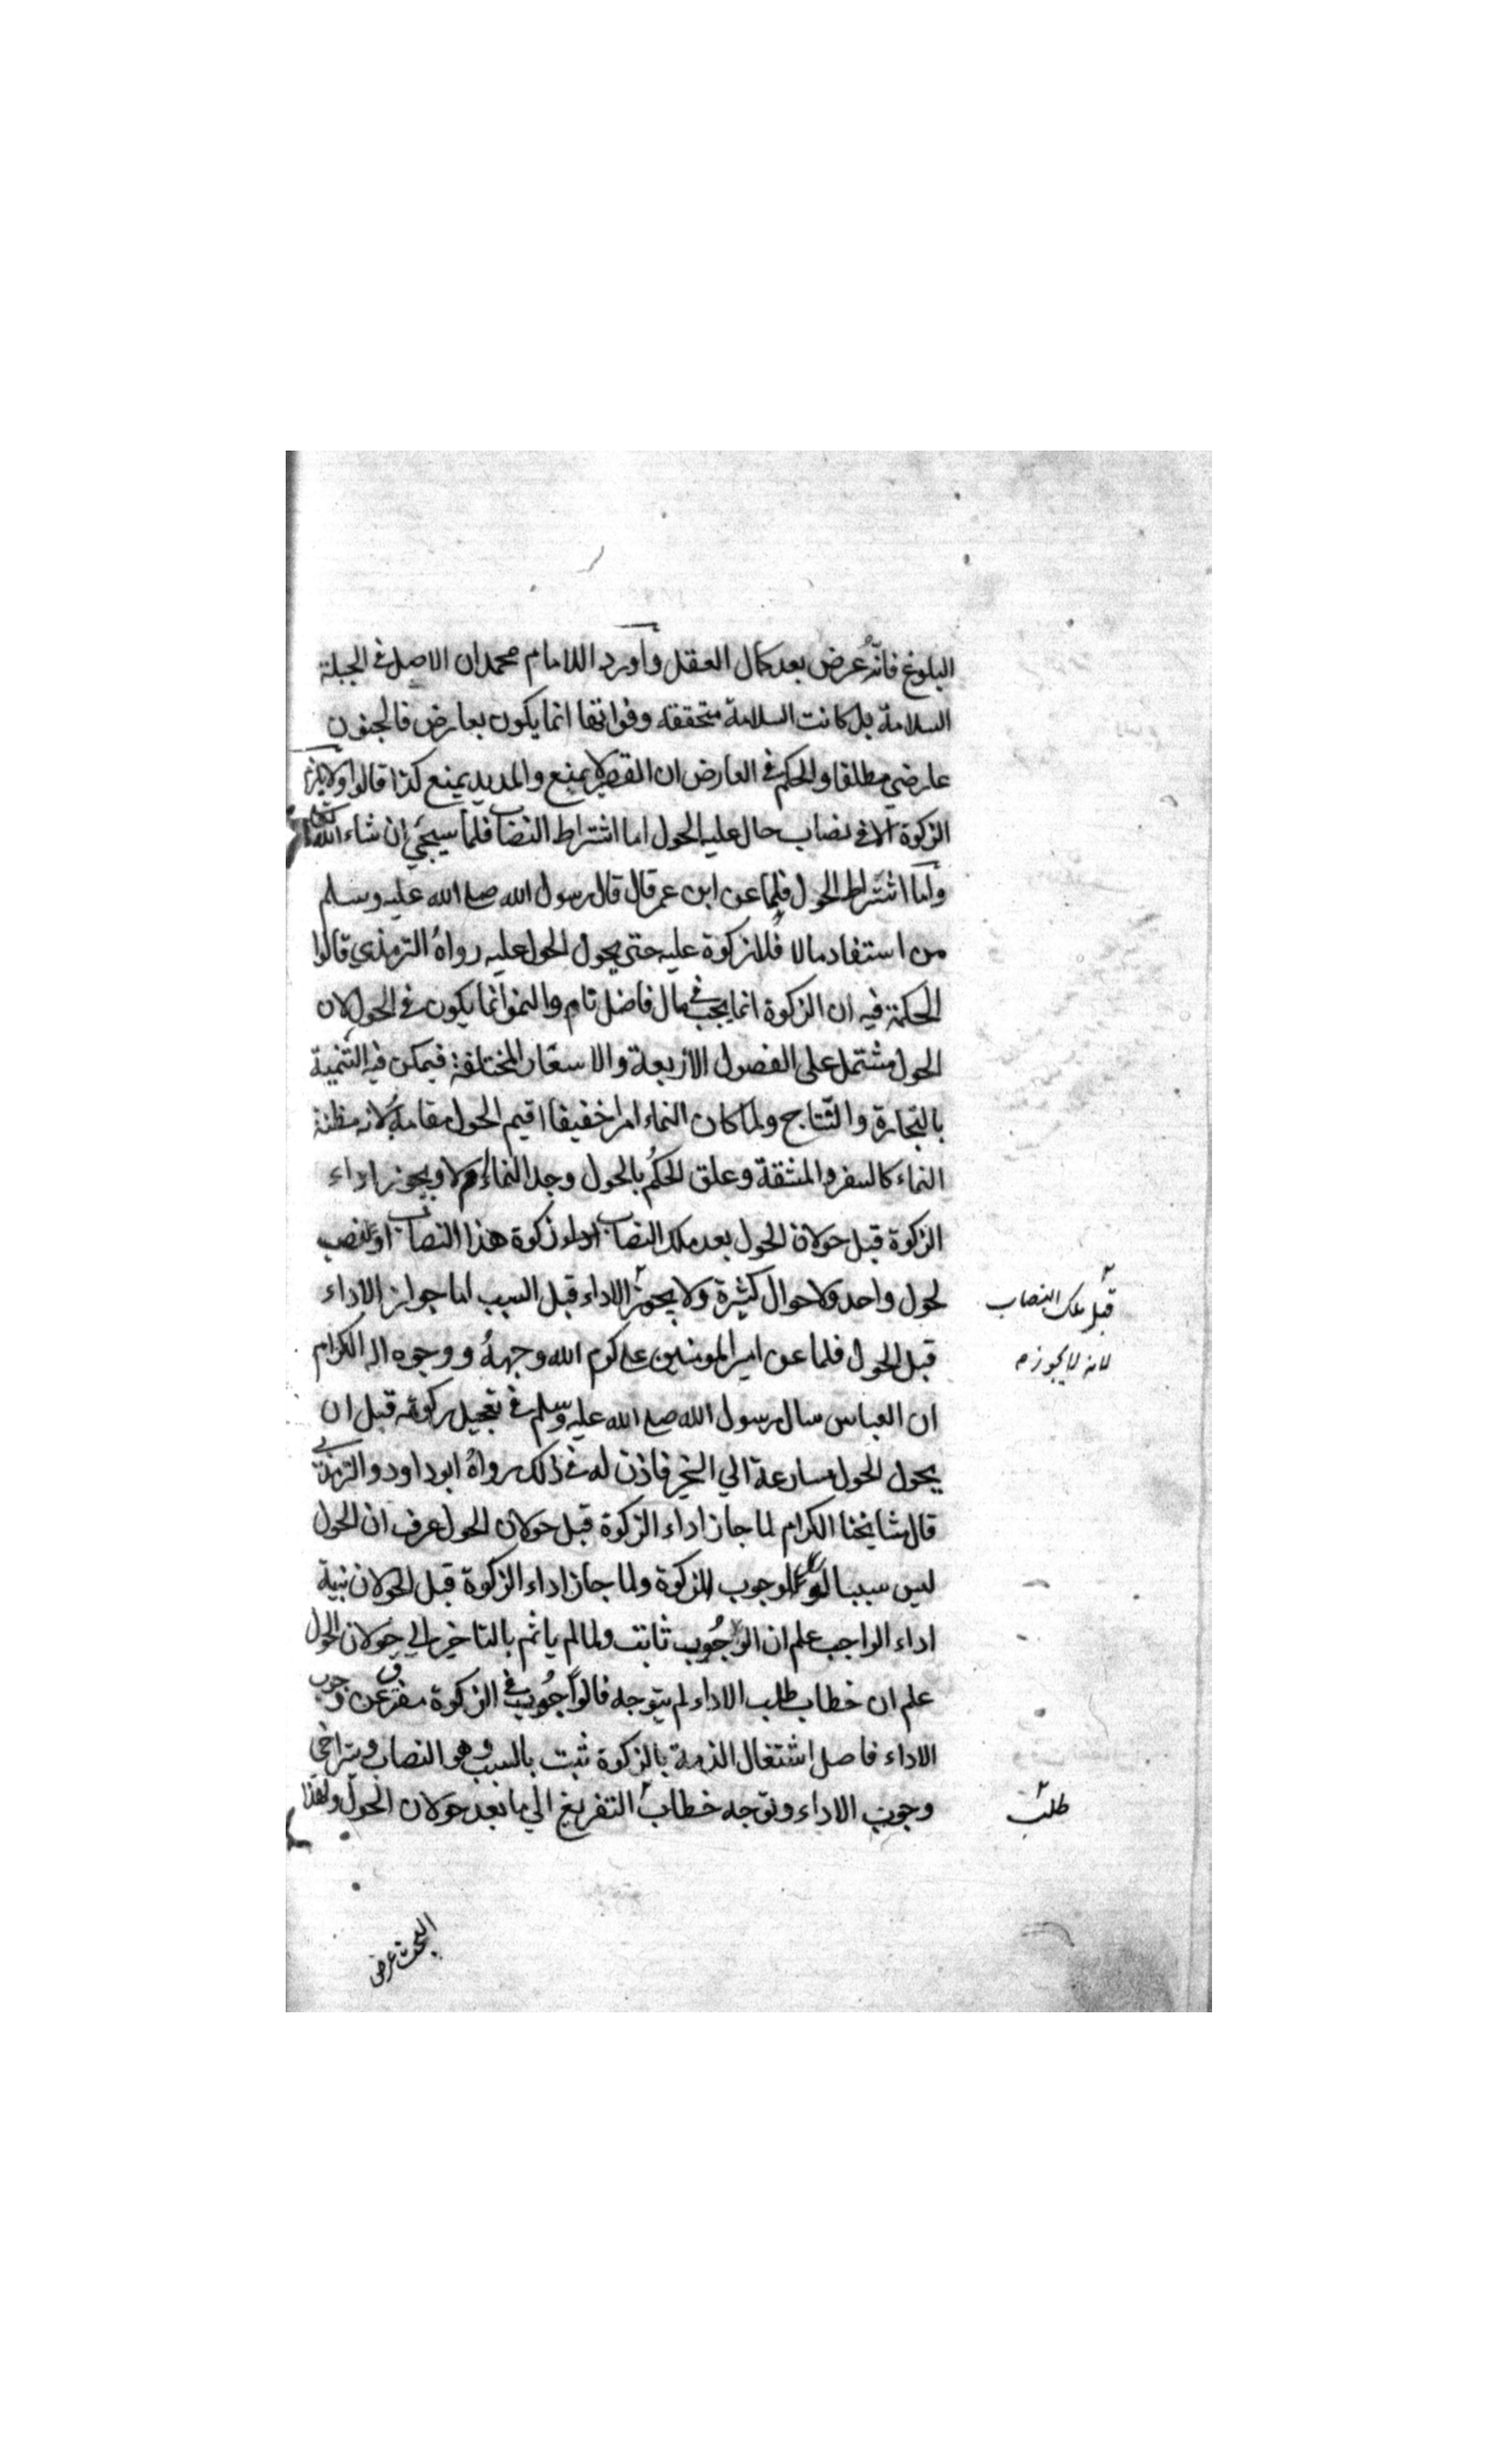 البلوغ فانه عرض بعد كمال العقل واورد الامام محمد ان الاصل في الجبلة
السلامة بل كانت السلامة متحققه وفواتها انما يكون بعارض فالجنون
عارضي مطلقا والحكم في العارض ان القصير لا يمنع والمديد يمنع كذا قالوا ولا
الزكوة الا في نصاب حال عليه الحول اما اشتراط النصاب فلما سيجئ ان شاء الله تعالى
واما اشتراط الحول فلما عن ابن عمر قال قال رسول الله صلع الله عليه وسلم
من استفاد مالا فلا زكوة عليه حتى يحول الحول عليه رواه الترمذي قالوا
الحكمة فيه ان الزكوة انما يجب في مال فاضل نام والنمو انما يكون في الحول لان
الحول مشتمل على الفصول الاربعة والاسعار المختلفة فيمكن فيه التنمية
بالتجارة والنتاج ولما كان النماء امرا خفيفا اقيم الحول مقامه لانه مظنة
النماء كالسفر والمشقة وعلق الحكم بالحول وجد النماء ام لا ويجوز اداء
الزكوة قبل حولان الحول بعد ملك النصاب اداء زكوة هذا النصاب او لنصب
لحول واحد ولاحوال كثيرة ولا يجوز الاداء قبل السبب اما جواز الاداء
قبل ملك النصاب
قبل الحول فلما عن امير المومنين على كرم الله وجهه ووجوه اله الكرام
لانه لا يجوز
ان العباس سال رسول الله صلع الله عليه وسلم في تعجيل زكوته قبل ان
يحول الحول مسارعة الي الخير فاذن له في ذلك رواه ابو داود والترمذي
قال مشايخنا الكرام لما جاز اداء الزكوة قبل حولان الحول عرف ان الحول
ليس سببا لوجوب الزكوة ولما جاز اداء الزكوة قبل الحولان نبية
اداء الواجب علم ان الوجوب ثابت ولما لم ياثم بالتاخير الي حولان الحول
علم ان خطاب طلب الاداء لم يتوجه فالوجوب في الزكوة مفترق عن وجوب
الاداء فاصل اشتغال الذمة بالزكوة ثبت بالسبب وهو النصاب ويتراخي
وجوب الاداء وتوجه خطاب التفريغ الي ما بعد حولان الحول ولهذا
طلب